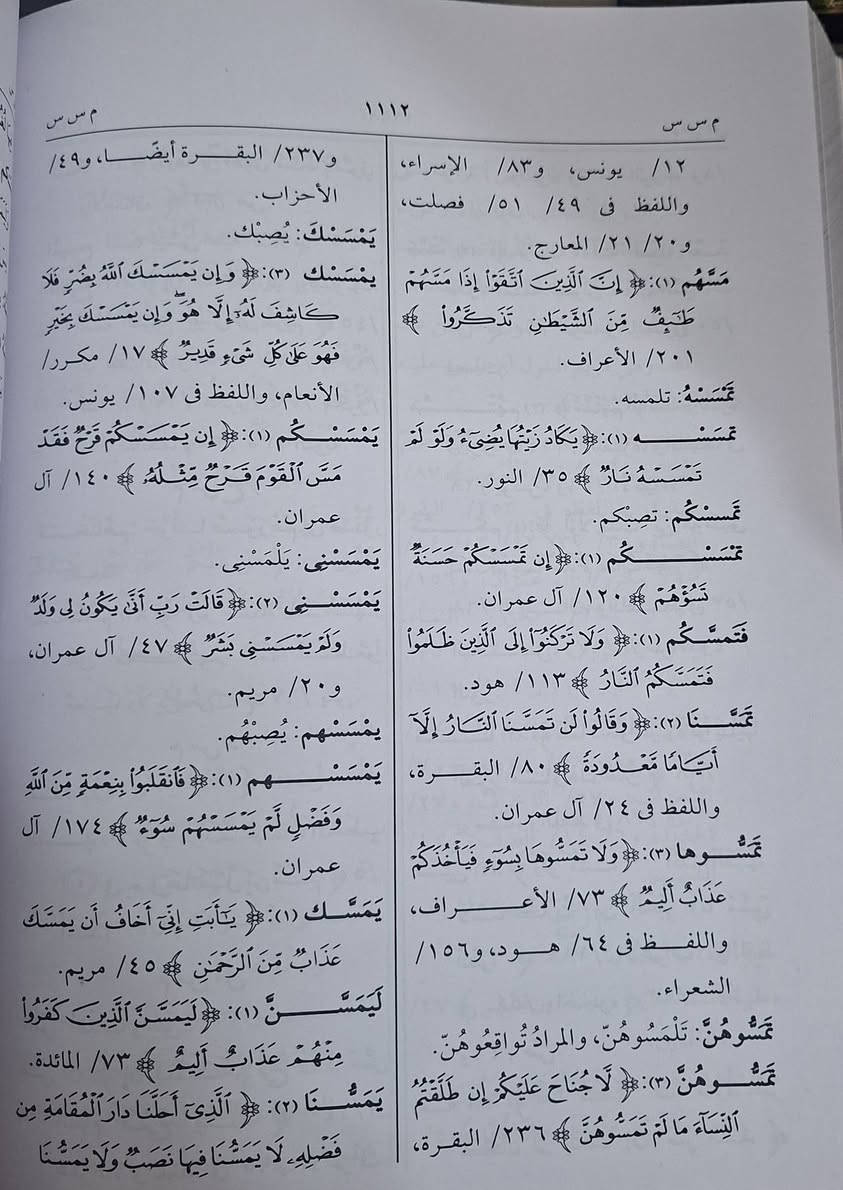 م س س
١١١٢
م س س
١٢/ يونس، و٨٣/ الإسراء،
واللفظ فى ٤٩/ ٥١/ فصلت،
و٢٠/ ٢١/ المعارج.
مَسَّهُم (١): ﴿ إِنَّ ٱلَّذِينَ ٱتَّقَوْا۟ إِذَا مَسَّهُمْ
طَٰٓئِفٌ مِّنَ ٱلشَّيْطَٰنِ تَذَكَّرُوا۟ ﴾
٢٠١/ الأعراف.
تَمْسَسْهُ: تلمسه.
تمْسَسْـه (١): ﴿ يَكَادُ زَيْتُهَا يُضِىٓءُ وَلَوْ لَمْ
تَمْسَسْهُ نَارٌ ﴾ ٣٥/ النور.
تَمْسسْكُم: تصبْكم.
تَمْسَسْـكُم (١): ﴿ إِن تَمْسَسْكُمْ حَسَنَةٌ
تَسُؤْهُمْ ﴾ ١٢٠/ آل عمران.
فَتَمسَّكُم (١): ﴿ وَلَا تَرْكَنُوٓا۟ إِلَى ٱلَّذِينَ ظَلَمُوا۟
فَتَمَسَّكُمُ ٱلنَّارُ ﴾ ١١٣/ هود.
تَمَسَّـنَا (٢): ﴿ وَقَالُوا۟ لَن تَمَسَّنَا ٱلنَّارُ إِلَّآ
أَيَّامًا مَّعْدُودَةً ﴾ ٨٠/ البقـرة،
واللفظ فى ٢٤/ آل عمران.
تَمَسُّـوها (٣): ﴿ وَلَا تَمَسُّوهَا بِسُوٓءٍ فَيَأْخُذَكُمْ
عَذَابٌ أَلِيمٌ ﴾ ٧٣/ الأعـراف،
واللفـظ فى ٦٤/ هـود، و١٥٦/
الشعراء.
تَمَسُّوهُنَّ: تَلْمَسُوهُنّ، والمرادُ تُواقِعُوهُنّ.
تَمَسُّـوهُنَّ (٣): ﴿ لَّا جُنَاحَ عَلَيْكُمْ إِن طَلَّقْتُمُ
ٱلنِّسَآءَ مَا لَمْ تَمَسُّوهُنَّ ﴾ ٢٣٦/ البقرة،
و٢٣٧/ البقـرة أيضًـا، و٤٩/
الأحزاب.
يَمْسَسْكَ: يُصِبْك.
يمْسَسْك (٣): ﴿ وَإِن يَمْسَسْكَ ٱللَّهُ بِضُرٍّ فَلَا
كَاشِفَ لَهُۥٓ إِلَّا هُوَ ۖ وَإِن يَمْسَسْكَ بِخَيْرٍ
فَهُوَ عَلَىٰ كُلِّ شَىْءٍ قَدِيرٌ ﴾ ١٧/ مكرر/
الأنعام، واللفظ فى ١٠٧/ يونس.
يَمْسَسْـكُم (١): ﴿ إِن يَمْسَسْكُمْ قَرْحٌ فَقَدْ
مَسَّ ٱلْقَوْمَ قَرْحٌ مِّثْلُهُۥ ﴾ ١٤٠/ آل
عمران.
يَمْسَسْنِى: يَلْمَسْنِى.
يَمْسَسْـنِى (٢): ﴿ قَالَتْ رَبِّ أَنَّىٰ يَكُونُ لِى وَلَدٌ
وَلَمْ يَمْسَسْنِى بَشَرٌ ﴾ ٤٧/ آل عمران،
و٢٠/ مريم.
يمْسَسْهم: يُصِبْهُم.
يَمْسَسْـهم (١): ﴿ فَٱنقَلَبُوا۟ بِنِعْمَةٍ مِّنَ ٱللَّهِ
وَفَضْلٍ لَّمْ يَمْسَسْهُمْ سُوٓءٌ ﴾ ١٧٤/ آل
عمران.
يَمَسَّـك (١): ﴿ يَٰٓأَبَتِ إِنِّىٓ أَخَافُ أَن يَمَسَّكَ
عَذَابٌ مِّنَ ٱلرَّحْمَٰنِ ﴾ ٤٥/ مريم.
لَيَمَسَّـنَّ (١): ﴿ لَيَمَسَّنَّ ٱلَّذِينَ كَفَرُوا۟
مِنْهُمْ عَذَابٌ أَلِيمٌ ﴾ ٧٣/ المائدة.
يَمَسُّـنَا (٢): ﴿ ٱلَّذِىٓ أَحَلَّنَا دَارَ ٱلْمُقَامَةِ مِن
فَضْلِهِۦ لَا يَمَسُّنَا فِيهَا نَصَبٌ وَلَا يَمَسُّنَا